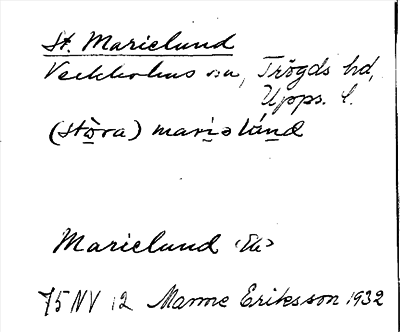 St. Marielund
Veckholms sn, Trögds hd,
Upps. l.
(stòra) mariəlánd
Marielund (Ek)
75 NV 12 Manne Eriksson 1932